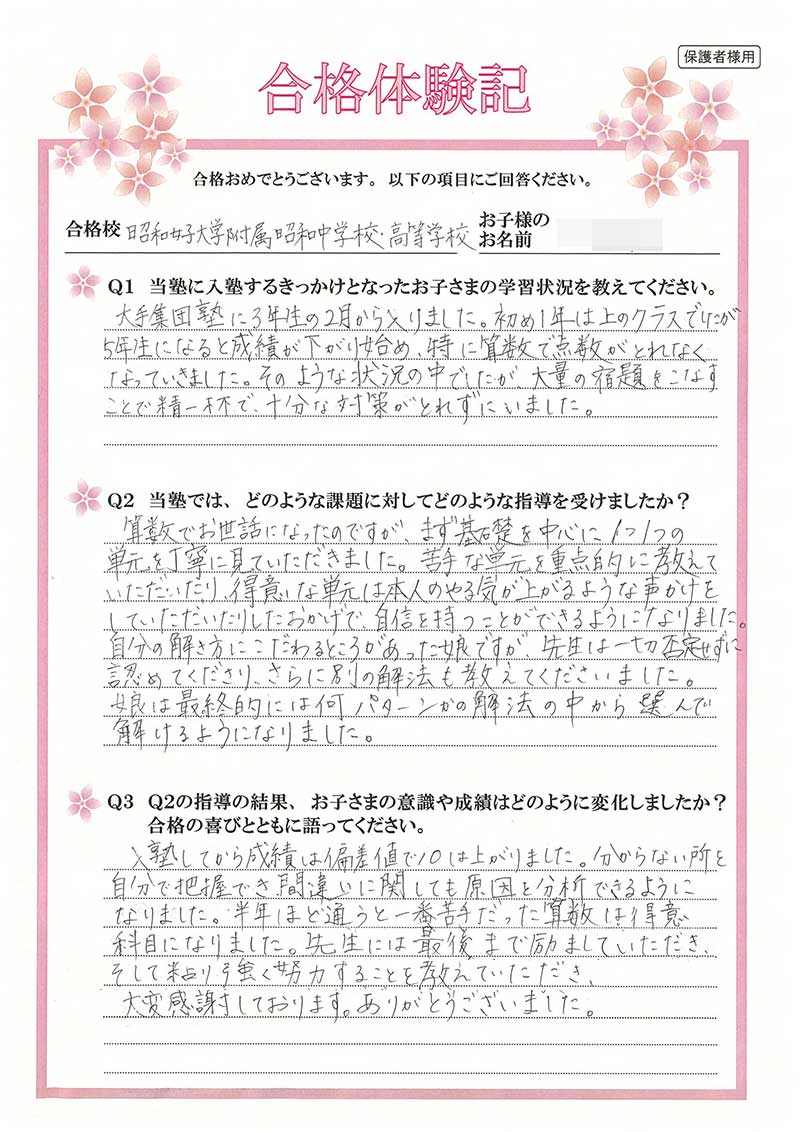 保護者様用
合格体験記
合格おめでとうございます。以下の項目にご回答ください。
合格校 昭和女子大学附属昭和中学校・高等学校 お子様の
お名前
Q1 当塾に入塾するきっかけとなったお子さまの学習状況を教えてください。
大手集団塾に3年生の2月から入りました。初め1年は上のクラスでしたが
5年生になると成績が下がり始め、特に算数で点数がとれなく
なっていきました。そのような状況の中でしたが、大量の宿題をこなす
ことで精一杯で、十分な対策がとれずにいました。
Q2 当塾では、どのような課題に対してどのような指導を受けましたか？
算数でお世話になったのですが、まず基礎を中心に1つ1つの
単元を丁寧に見ていただきました。苦手な単元を重点的に教えて
いただいたり、得意な単元は本人のやる気が上がるような声かけを
していただいたりしたおかげで、自信を持つことができるようになりました。
自分の解き方にこだわるところがあった娘ですが、先生は一切否定せずに
認めてくださり、さらに別の解法も教えてくださいました。
娘は最終的には何パターンかの解法の中から選んで
解けるようになりました。
Q3 Q2の指導の結果、お子さまの意識や成績はどのように変化しましたか？
合格の喜びとともに語ってください。
入塾してから成績は偏差値で10は上がりました。分からない所を
自分で把握でき間違いに関しても原因を分析できるように
なりました。半年ほど通うと一番苦手だった算数は得意
科目になりました。先生には最後まで励ましていただき、
そして粘り強く努力することを教えていただき、
大変感謝しております。ありがとうございました。